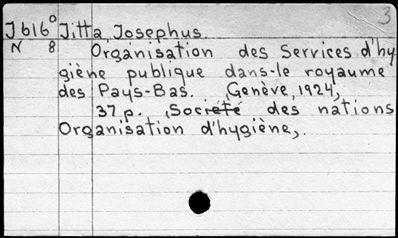 3
J616° Jitta, Josephus
N 8 Organisation des Services d'hy
giène publique dans-le royaume
des Pays-Bas. Genève, 1924,
37.p. ,Société des nations
Organisation d'hygiène,.